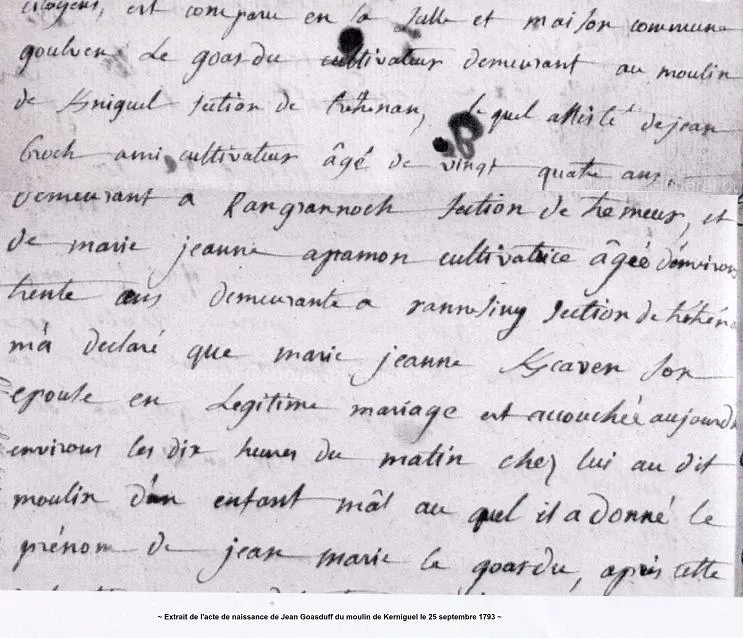 citoyens, est comparu en la salle et maison commune
goulven Le goasdu cultivateur demeurant au moulin
de Kniguel section de trehenan, lequel assisté de jean
Croch ami cultivateur âgé de vingt quatre ans
demeurant a section de et
de marie jeanne apamon cultivatrice âgée d'environ
trente ans demeurante a section de
m'a declaré que marie jeanne son
epouse en Legitime mariage est accouchée aujourd
environs les dix heures du matin chez lui au dit
moulin d'un enfant mâl au quel il a donné le
prénom de jean marie le goasdu, après cette
~ Extrait de l'acte de naissance de Jean Goasduff du moulin de Kerniguel le 25 septembre 1793 ~